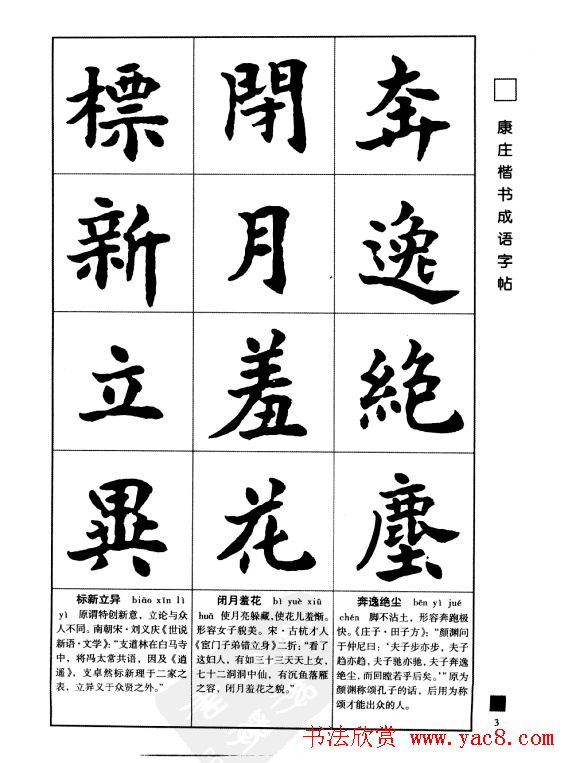 康庄楷书成语字帖
奔逸絶塵
閉月羞花
標新立異
奔逸绝尘 bēn yì jué
chén 脚不沾土，形容奔跑极
快。《庄子·田子方》：“颜渊问
于仲尼曰：‘夫子步亦步，夫子
趋亦趋，夫子驰亦驰，夫子奔逸
绝尘，而回瞠若乎后矣。’”原为
颜渊称颂孔子的话，后用为称
颂才能出众的人。
闭月羞花 bì yuè xiū
huā 使月亮躲藏，使花儿羞惭。
形容女子貌美。宋·古杭才人
《宦门子弟错立身》二折：“看了
这妇人，有如三十三天天上女，
七十二洞洞中仙，有沉鱼落雁
之容，闭月羞花之貌。”
标新立异 biāo xīn lì
yì 原谓特创新意，立论与众
人不同。南朝宋·刘义庆《世说
新语·文学》：“支道林在白马寺
中，将冯太常共语，因及《逍
遥》，支卓然标新理于二家之
表，立异义于众贤之外。”
3
书法欣赏 www.yac8.com